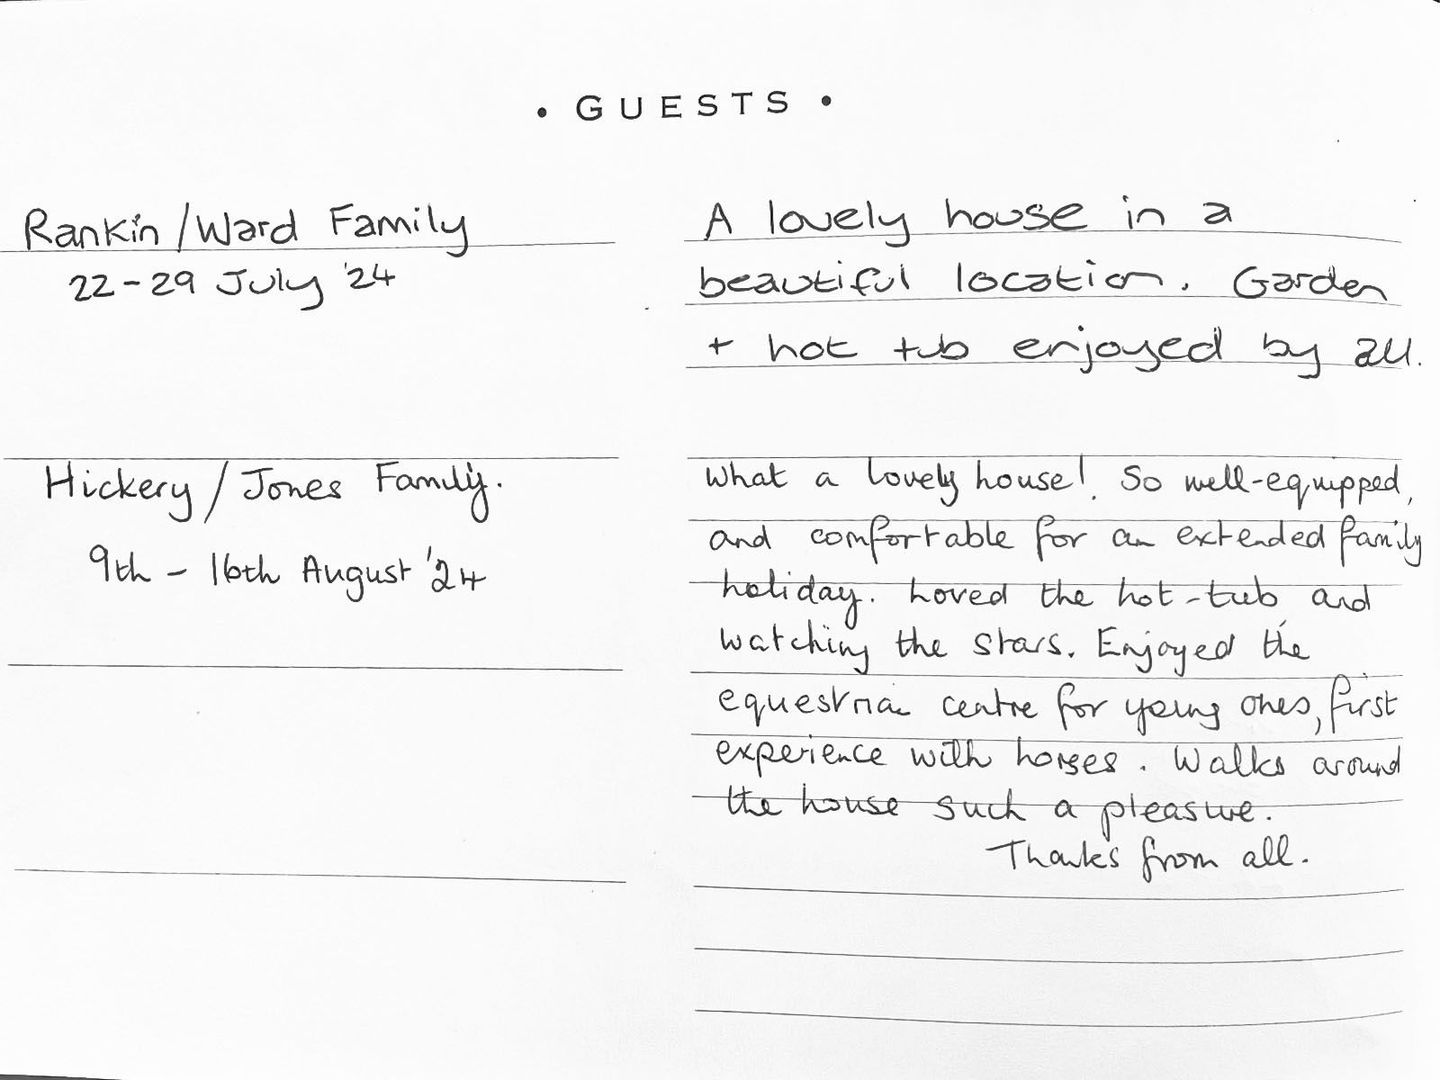 • GUESTS •
Rankin/Ward Family
22-29 July '24
A lovely house in a
beautiful location. Garden
+ hot tub enjoyed by all.
Hickery / Jones Family.
9th - 16th August '24
What a lovely house! So well-equipped,
and comfortable for an extended family
holiday. Loved the hot-tub and
watching the stars. Enjoyed the
equestrian centre for young ones, first
experience with horses. Walks around
the house such a pleasure.
Thanks from all.